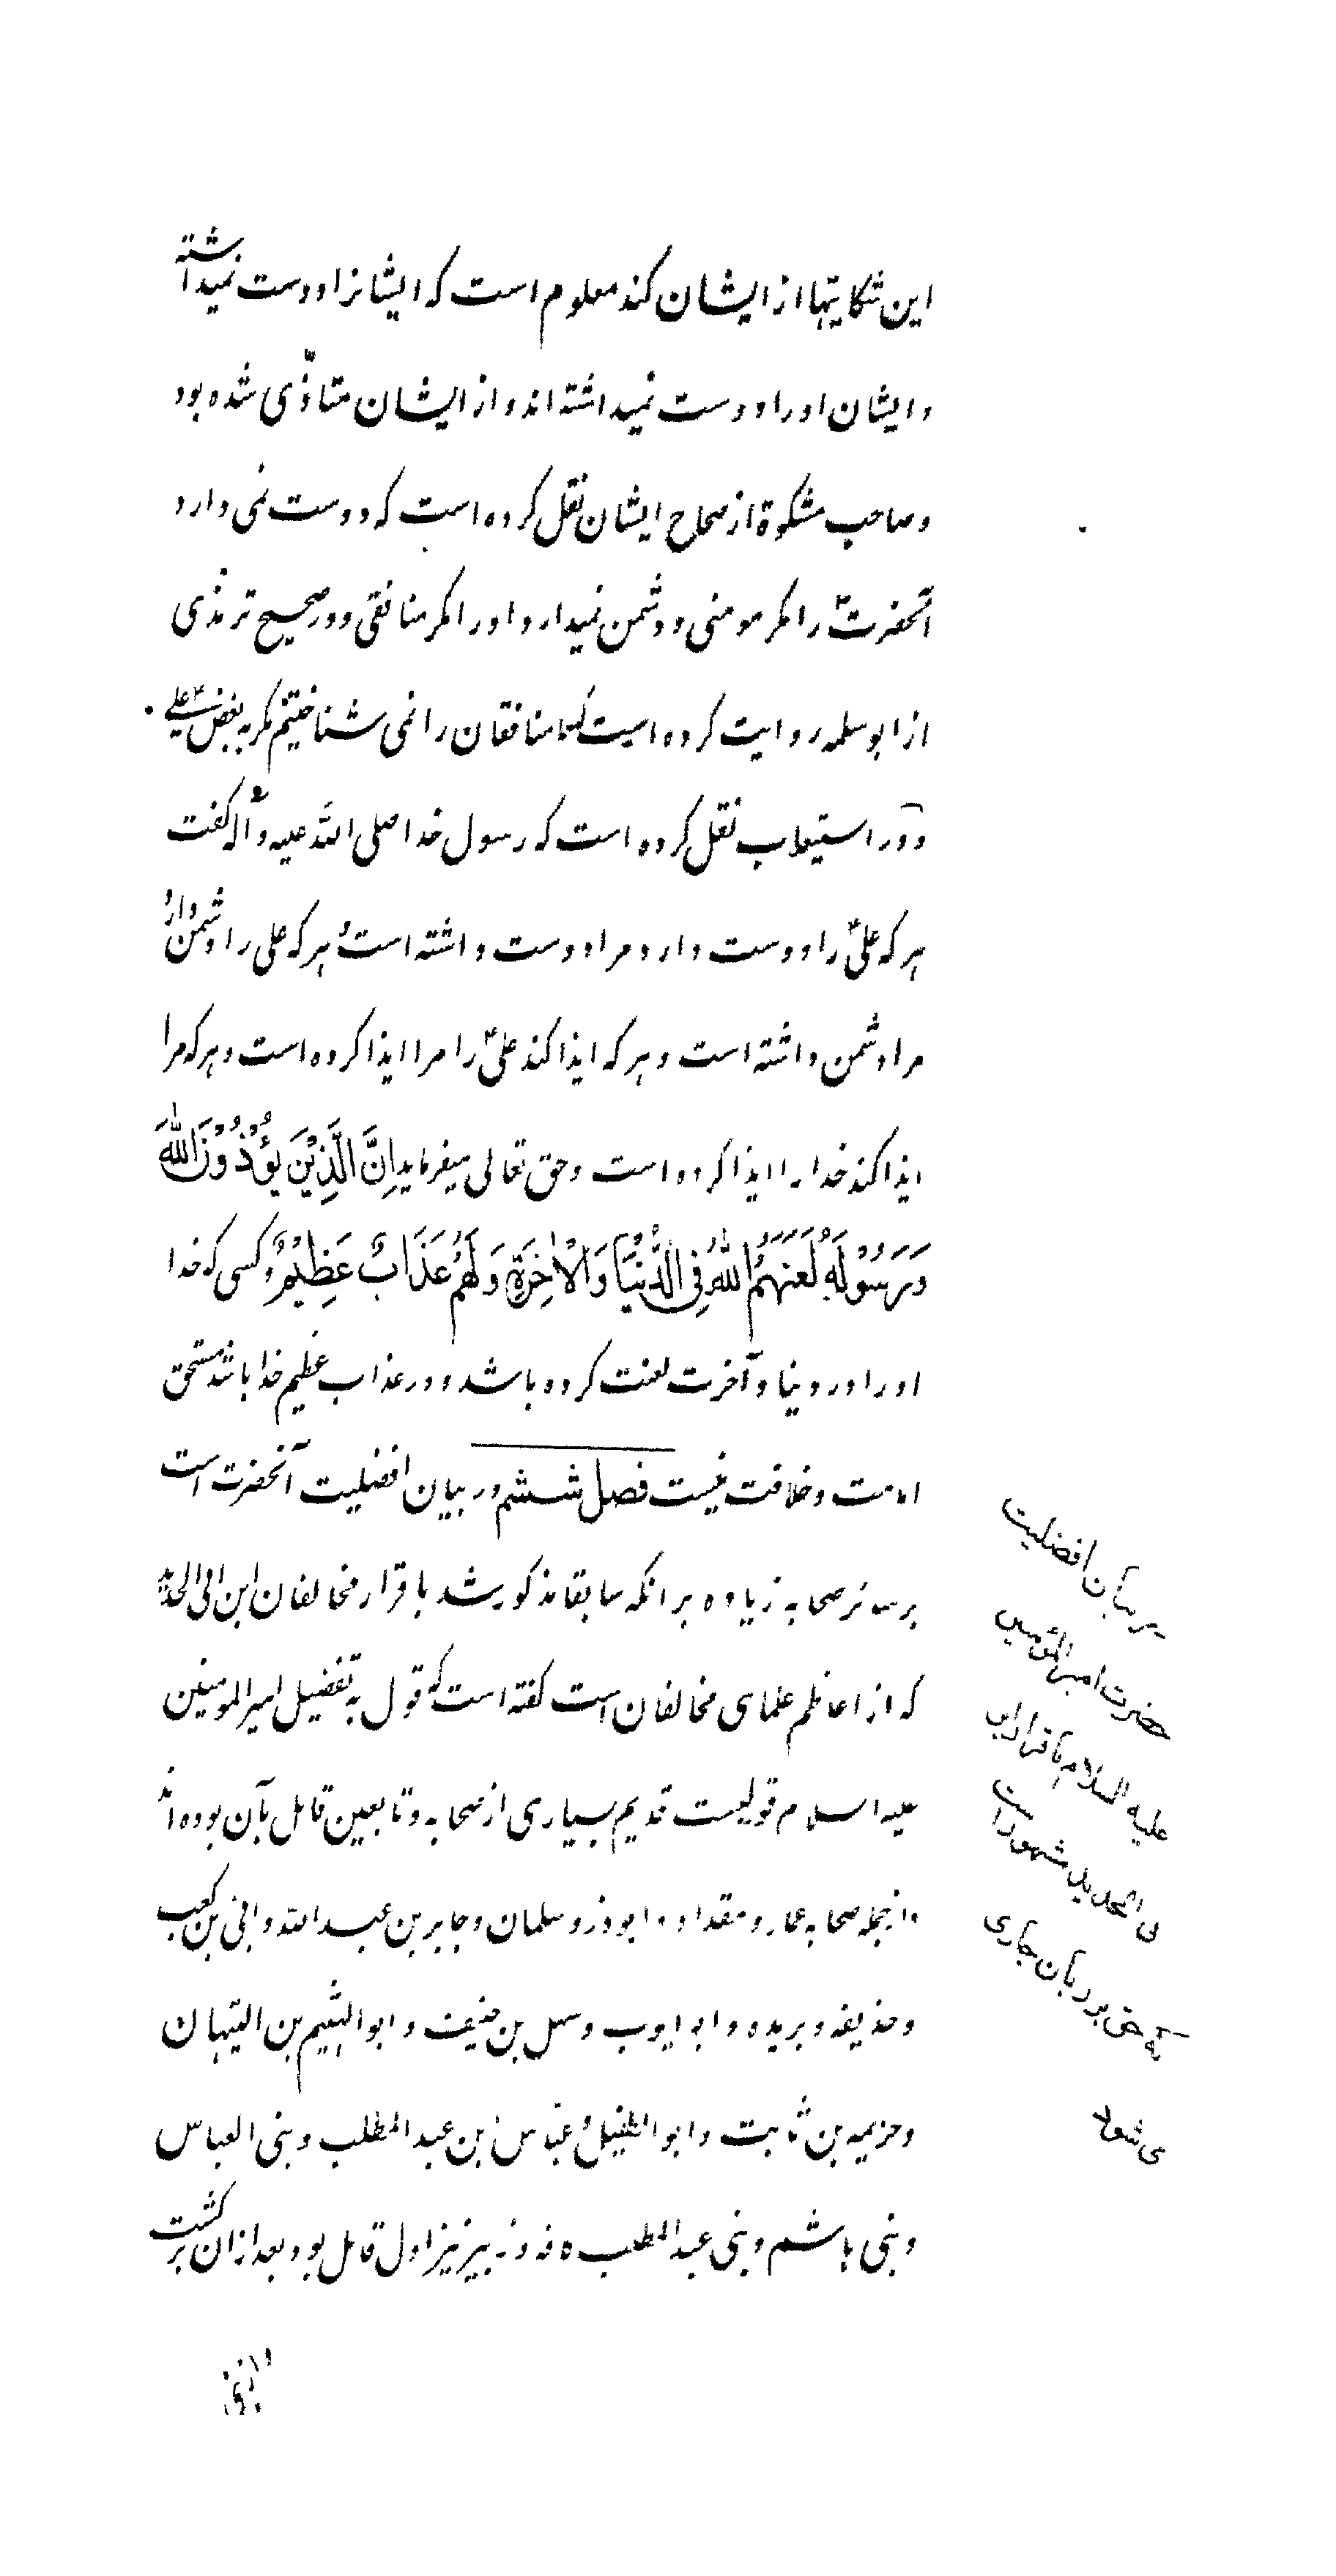 این شکایتها از ایشان کند معلوم است که ایشانرا دوست نمیداشته
و ایشان او را دوست نمیداشته اند و از ایشان متاذّی شده بود
و صاحب مشکوة از صحاح ایشان نقل کرده است که دوست نمی دارد
آنحضرتؑ را مکر مومنی و دشمن نمیدارد او را مکر منافقی و در صحیح ترمذی
از ابو سلمه روایت کرده است که ما منافقان را نمی شناختیم مکر به بغض علیؑ
و در استیعاب نقل کرده است که رسول خدا صلی الله علیه و آله کفت
هر که علیؑ را دوست دارد مرا دوست داشته است و هر که علی را دشمن دارد
مرا دشمن داشته است و هر که ایذا کند علیؑ را مرا ایذا کرده است و هر که مرا
ایذا کند خدا را ایذا کرده است و حق تعالی میفرماید اِنَّ الَّذِیْنَ یُؤْذُوْنَ اللهَ
وَ رَسُوْلَهُ لَعَنَهُمُ اللهُ فِی الدُّنْیَا وَ الْاٰخِرَةِ وَ لَهُمْ عَذَابٌ عَظِیْمٌ و کسی که خدا
او را در دنیا و آخرت لعنت کرده باشد و در عذاب عظیم خدا باشد مستحق
امامت و خلافت نیست فصل ششم در بیان افضلیت آنحضرت است
بر سائر صحابه زیاده بر انکه سابقا مذکور شد باقرار مخالفان ابن ابی الحدید
که از اعاظم علمای مخالفان است کفته است که قول به تفضیل امیر المومنین
علیه السلام قولیست قدیم بسیاری از صحابه و تابعین قایل بآن بوده اند
و ازجمله صحابه عمار و مقداد و ابوذر و سلمان و جابر بن عبد الله و ابی بن کعب
و حذیفه و بریده و ابو ایوب و سهل بن حنیف و ابو الهیثم بن التیهان
و خزیمه بن ثابت و ابو الطفیل و عباس بن عبد المطلب و بنی العباس
و بنی هاشم و بنی عبد المطلب کافه و زبیر نیز اول قایل بود بعد ازان برکشت
بر بیان افضلیت
حضرت امیر المؤمنین
علیه السلام باقرار ابن
ابی الحدید مشهور است
که حق بر زبان جاری
می شود